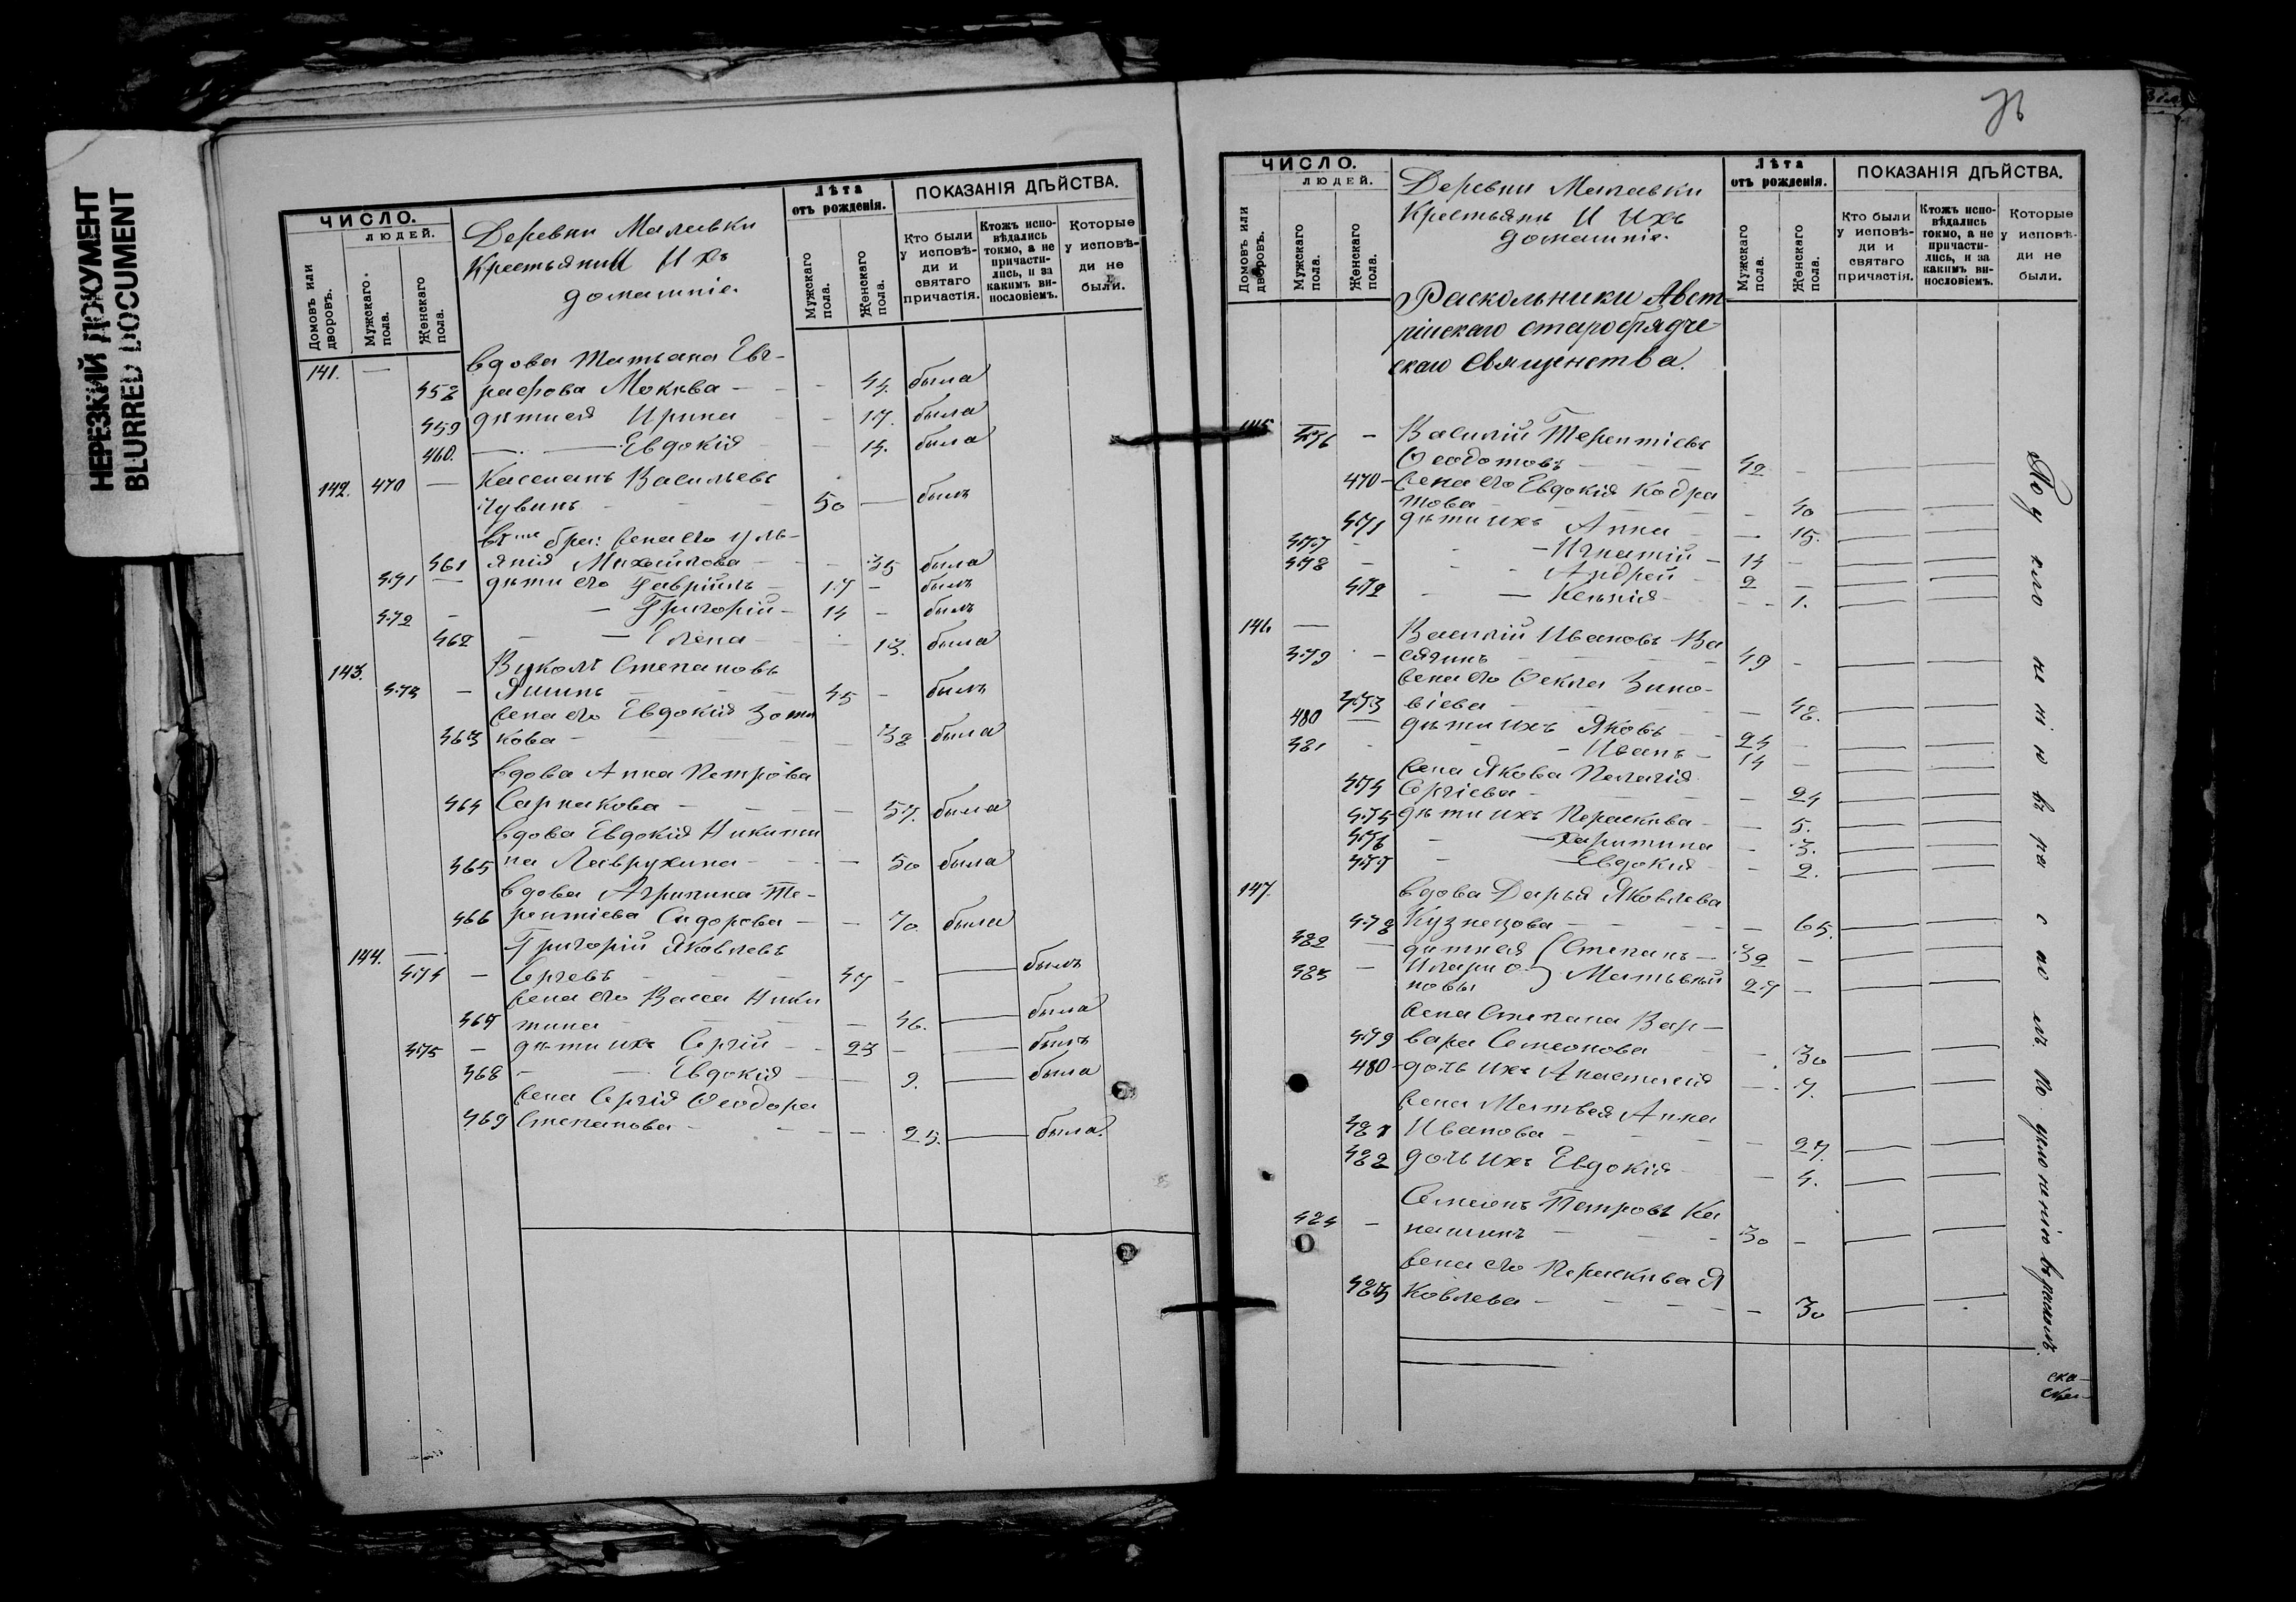 НЕРЕЗКИЙ ДОКУМЕНТ
BLURRED DOCUMENT
ЧИСЛО.
ЛЮДЕЙ.
Домовъ или дворовъ.
Мужскаго пола.
Женскаго пола.
Деревни Малавки
Крестьяни И Ихъ
домашніе.
Лѣта
отъ рожденія.
Мужскаго пола.
Женскаго пола.
ПОКАЗАНІЯ ДѢЙСТВА.
Кто были у исповѣди и святаго причастія.
Ктожъ исповѣдались токмо, а не причастились, и за какимъ винословіемъ.
Которые у исповѣди не были.
141. — вдова Татьана Ев-
458 графова Мокѣва — 44. была
459 дѣти ея Ирина — 17. была
460. — Евдокія — 14. была
142. 470 — Кассианъ Васильевъ
Чувинъ — 50 — былъ
бра: жена его Уль-
461 янія Михайлова — 35 была
471 — дѣти его Гавріилъ — 17 — былъ
472 — Григорій — 14 — былъ
462 — Елена — 13. была
143. Вуколъ Степановъ
473 — Яшинъ — 45 — былъ
жена его Евдокія Зоти
463 кова — 38 была
вдова Анна Петрова
464 Сарпакова — 57. была
вдова Евдокія Никити
465 на Лаврухина — 50 была
вдова Агрипина Те-
466 рентіева Сидорова — 70 была
144. — Григорій Яковлевъ
474 — Сергевъ — 47 — былъ
жена его Васса Ники
467 тина — 46. — была
475 — дѣти ихъ Сергій — 23 — былъ
468 — Евдокія — 9. — была
жена Сергія Ѳеодора
469 Степанова — 25. — была.
ЧИСЛО.
ЛЮДЕЙ.
Домовъ или дворовъ.
Мужскаго пола.
Женскаго пола.
Деревни Малавки
Крестьянъ И Ихъ
домашніе.
Лѣта
отъ рожденія.
Мужскаго пола.
Женскаго пола.
ПОКАЗАНІЯ ДѢЙСТВА.
Кто были у исповѣди и святаго причастія.
Ктожъ исповѣдались токмо, а не причастились, и за какимъ винословіемъ.
Которые у исповѣди не были.
Раскольники Авст
рійскаго старообрядче-
скаго священства.
145 476 — Василій Терентіевъ
Ѳеодотовъ — 42 —
470 — жена его Евдокія Кодра
това — 40
471 дѣти ихъ Анна — 15.
477 — Игнатій — 14 —
478 — Андрей — 2 —
472 — Ксенія — 1.
146 — Василій Ивановъ Ва
479 — сягинъ — 49 —
жена его Ѳекла Зино-
473 віева — 48.
480 — дѣти ихъ Яковъ — 24 —
481 — Иванъ — 14 —
жена Якова Пелагія
474 Сергіева — 24
475 дѣти ихъ Параскева — 5.
476 — Харитина — 3.
477 — Евдокія — 2.
147. вдова Дарья Яковлева
478 Кузнецова — 65.
482 — дѣти ея Степанъ — 32 —
483 — Иларіоновы Матьвѣй 27 —
жена Степана Вар-
479 вара Семеонова — 30
480 — дочь ихъ Анастасія — 7.
жена Матвея Анна
481 Иванова — 27.
482 дочь ихъ Евдокія — 4.
Семенъ Петровъ Ка
484 — нашинъ — 30 —
жена его Параскева Я
483 ковлева — 30
по уклоненію въ расколъ.
ска-